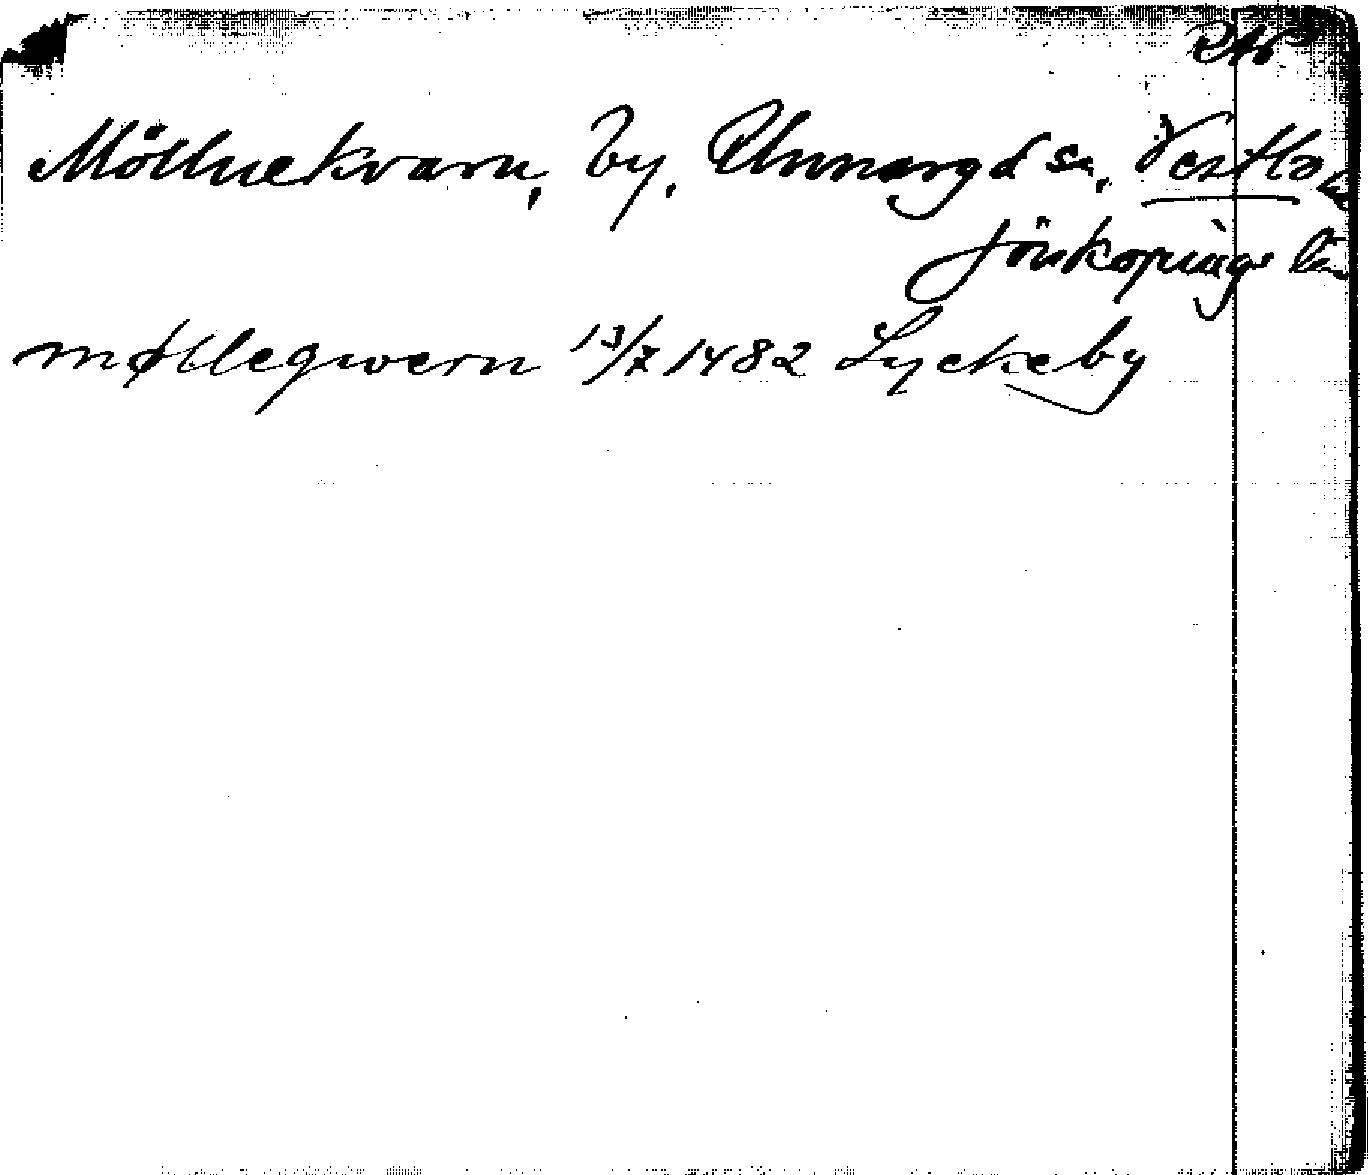 Möllnekvarn, by, Unnaryd sn, Vestbo
Jönköpings län
møllegwern 13/7 1482 Lyckeby